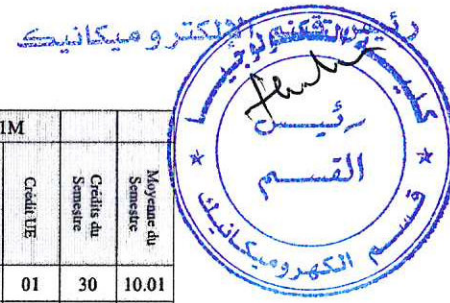 رئيس الإلكتروميكانيك
كلية التكنولوجيا
رئيس
القسم
قسم الكهروميكانيك
1M
Crédit UE
Crédits du Semestre
Moyenne du Semestre
01 30 10.01